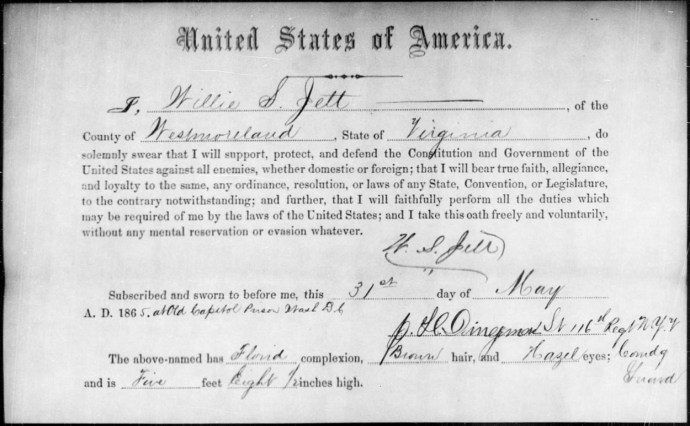 United States of America.
I, Willie S. Jett, of the
County of Westmoreland, State of Virginia, do
solemnly swear that I will support, protect, and defend the Constitution and Government of the
United States against all enemies, whether domestic or foreign; that I will bear true faith, allegiance,
and loyalty to the same, any ordinance, resolution, or laws of any State, Convention, or Legislature,
to the contrary notwithstanding; and further, that I will faithfully perform all the duties which
may be required of me by the laws of the United States; and I take this oath freely and voluntarily,
without any mental reservation or evasion whatever.
W. S. Jett
Subscribed and sworn to before me, this 31st day of May
A. D. 1865. at Old Capitol Prison Wash D.C
116th Regt N.Y.V
The above-named has Florid complexion, Brown hair, and Hazel eyes; Comdg
and is Five feet Eight 1/2 inches high. Guard